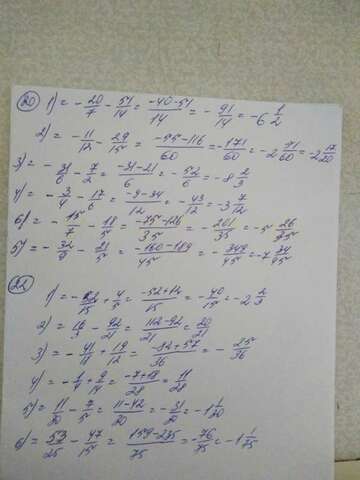 20 1) = - 20/7 - 51/14 = -40-51/14 = - 91/14 = -6 1/2
2) = - 11/12 - 29/15 = -55-116/60 = -171/60 = -2 51/60 = -2 17/20
3) = - 31/6 - 7/2 = -31-21/6 = - 52/6 = -8 2/3
4) = - 3/4 - 17/6 = -9-34/12 = -43/12 = -3 7/12
6) = - 15/7 - 18/5 = -75-126/35 = - 201/35 = -5 26/35
5) = - 32/9 - 21/5 = -160-189/45 = - 349/45 = -7 34/45
22
1) = - 52/15 + 4/5 = -52+12/15 = - 40/15 = -2 2/3
2) = 16/3 - 92/21 = 112-92/21 = 20/21
3) = - 41/18 + 19/12 = -82+57/36 = - 25/36
4) = - 1/4 + 9/14 = -7+18/28 = 11/28
5) = 11/20 - 7/5 = 11-42/20 = - 31/20 = -1 1/20
6) = 53/25 - 47/15 = 159-235/75 = -76/75 = -1 1/75